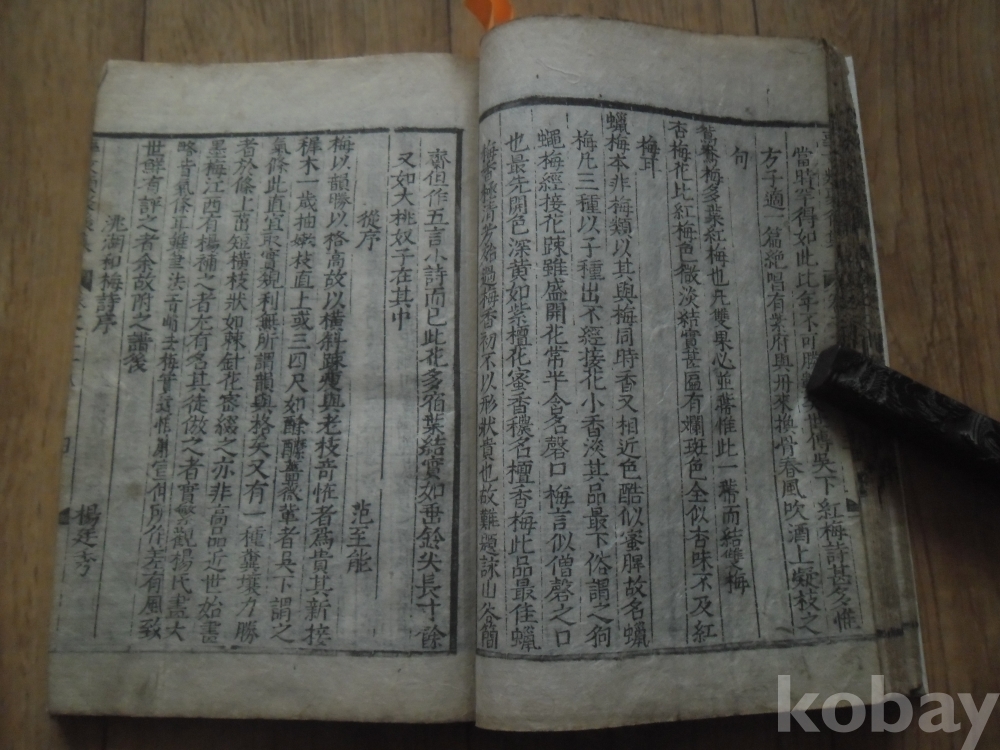 當時罕得如此比年不可勝世傳吳下紅梅詩甚多惟
方子適一篇絶唱有紫府與丹來換骨春風吹酒上凝枝之
句
鴛鴦梅多葉紅梅也凡雙果必並蔕惟此一蔕而結雙梅
杏梅花比紅梅色微淡結實甚匾有斕斑色全似杏味不及紅
梅耳
蠟梅本非梅類以其與梅同時香又相近色酷似蜜脾故名蠟
梅凡三種以子種出不經接花小香淡其品最下俗謂之狗
蠅梅經接花踈雖盛開花常半含名磬口梅言似僧磬之口
也最先開色深黃如紫檀花蜜香穠名檀香梅此品最佳蠟
梅香極清芳殆過梅香初不以形狀貴也故難題詠山谷簡
齋但作五言小詩而已此花多宿葉結實如垂鈴尖長寸餘
又如大桃奴子在其中
後序 范至能
梅以韻勝以格高故以橫斜踈瘦與老枝竒怪者爲貴其新接
穉木一歲抽嫩枝直上或三四尺如酴醾薔薇軰者吳下謂之
氣條此直宜取實規利無所謂韻與格矣又有一種糞壤力勝
者於條上茁短橫枝狀如棘針花密綴之亦非高品近世始畫
墨梅江西有楊補之者尤有名其徒倣之者實繁觀楊氏畫大
略皆氣條耳雖筆法竒峭去梅實遠惟廉宣仲所作差有風致
世鮮有評之者余故附之譜後
洮湖和梅詩序 楊廷秀
kobay